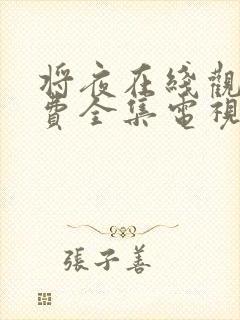 將夜在綫觀
費全集電視
張子善